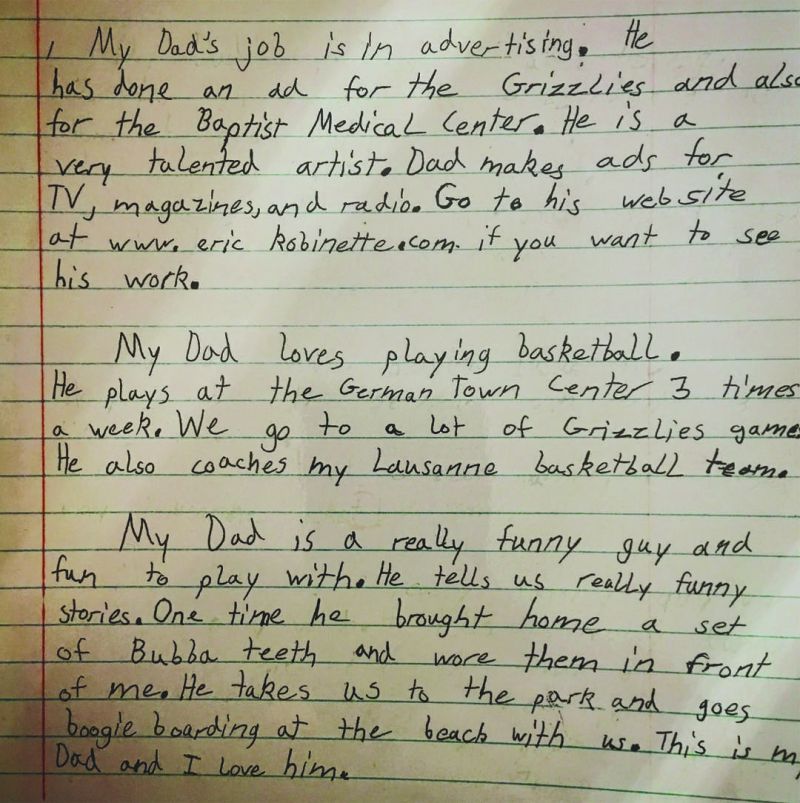 My Dad's job is in advertising. He
has done an ad for the Grizzlies and also
for the Baptist Medical Center. He is a
very talented artist. Dad makes ads for
TV, magazines, and radio. Go to his web site
at www. eric kobinette.com. if you want to see
his work.
My Dad loves playing basketball.
He plays at the German Town Center 3 times
a week. We go to a lot of Grizzlies game
He also coaches my Lausanne basketball team.
My Dad is a really funny guy and
fun to play with. He tells us really funny
stories. One time he brought home a set
of Bubba teeth and wore them in front
of me. He takes us to the park and goes
boogie boarding at the beach with us. This is m
Dad and I love him.